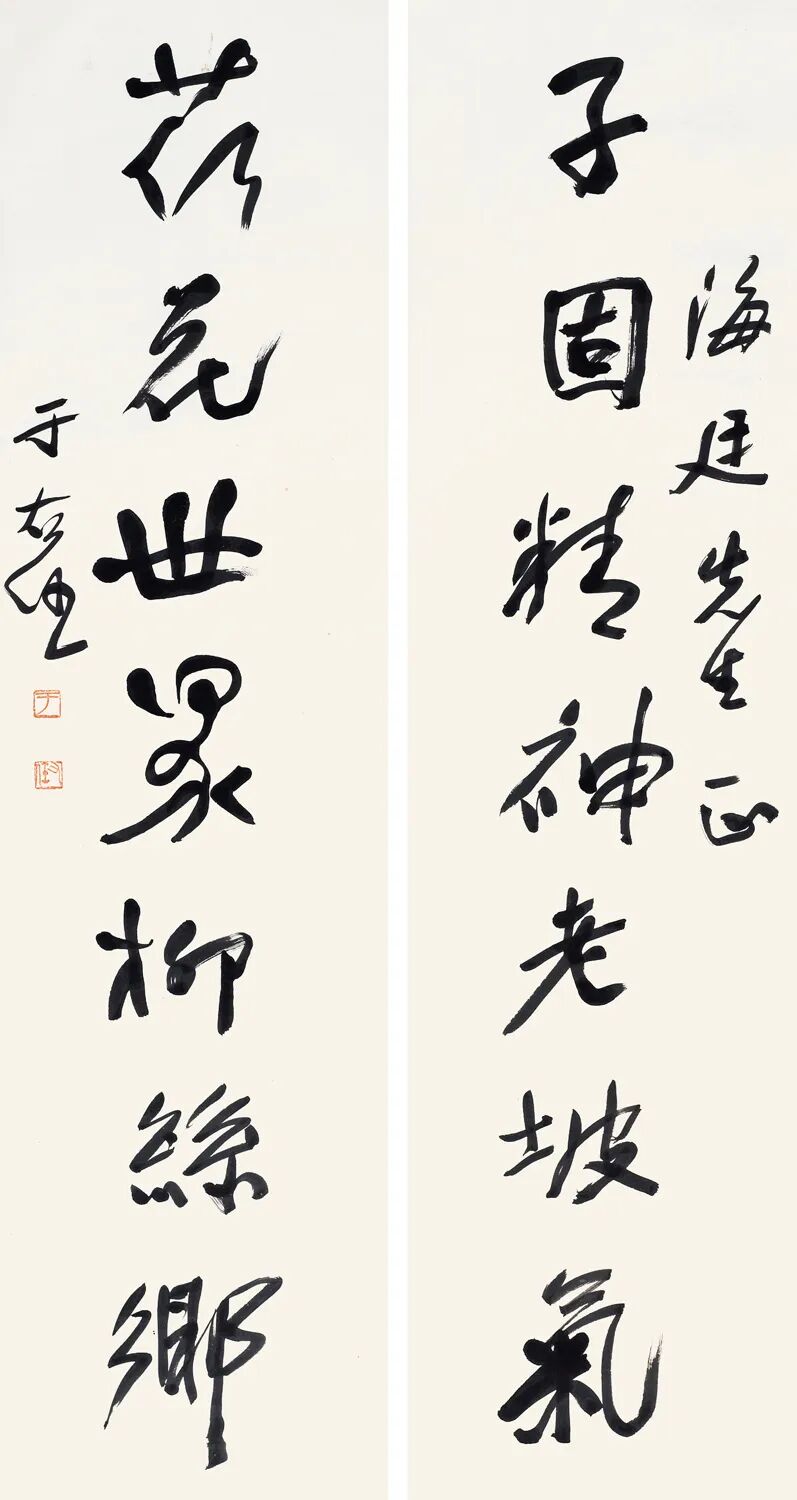 海廷先生正
子固精神老坡氣
荻花世界柳絲鄉
于右任